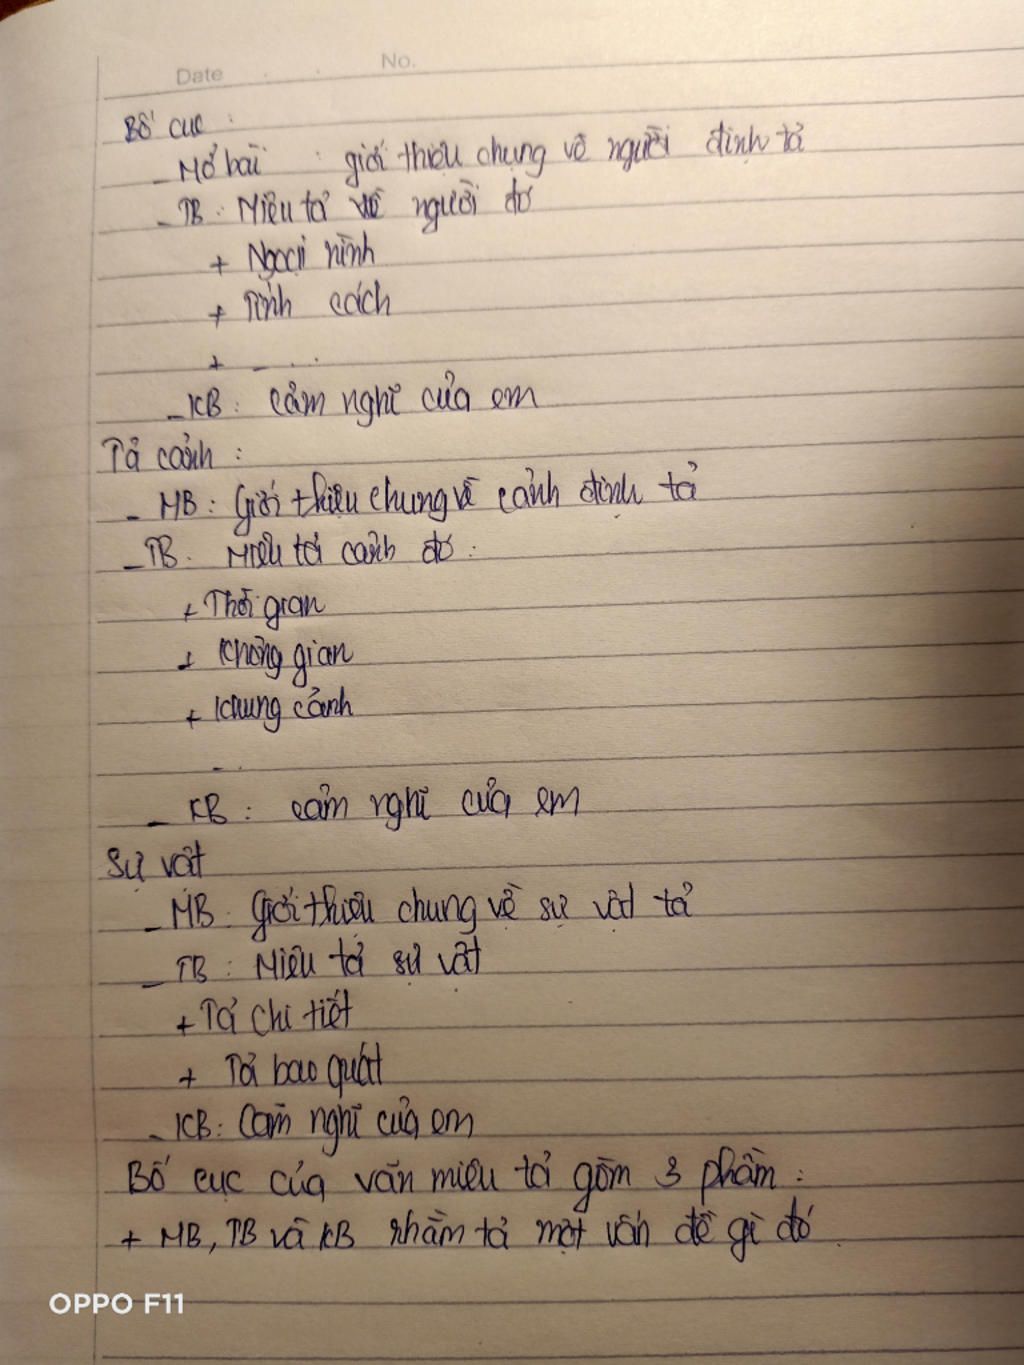 Date No.
Bố cục :
- Mở bài : giới thiệu chung về người định tả
- TB : Miêu tả về người đó
+ Ngoại hình
+ Tính cách
+ - ...
- KB : cảm nghĩ của em
Tả cảnh :
- MB : Giới thiệu chung về cảnh định tả
- TB . Miêu tả cảnh đó :
+ Thời gian
+ Không gian
+ Khung cảnh
- .
- KB : cảm nghĩ của em
Sự vật
- MB . Giới thiệu chung về sự vật tả
- TB : Miêu tả sự vật
+ Tả chi tiết
+ Tả bao quát
- KB : Cảm nghĩ của em
Bố cục của văn miêu tả gồm 3 phần :
+ MB, TB và KB nhằm tả một vấn đề gì đó
OPPO F11